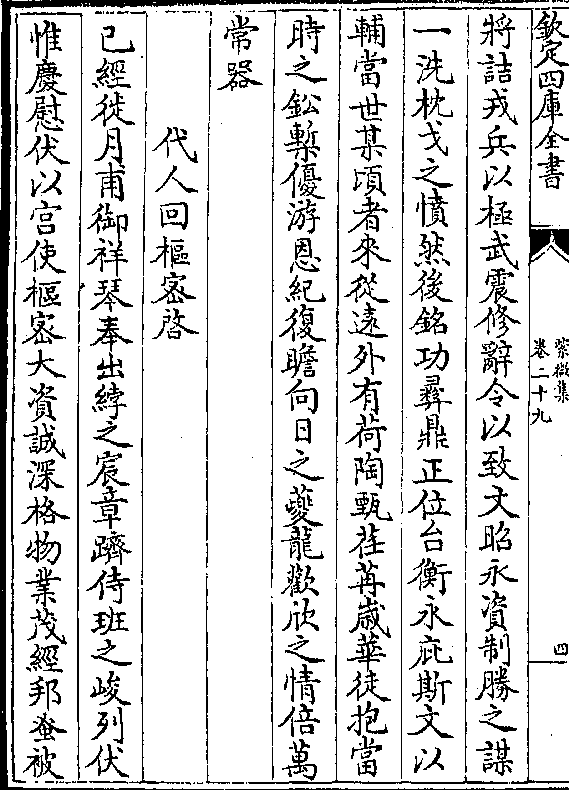 欽定四庫全書
紫微集
卷二十九
四
將詰戎兵以極武震修辭令以致文昭永資制勝之謀
一洗枕戈之憤然後銘功彛鼎正位台衡永庇斯文以
輔當世某頃者來從遠外有荷陶甄荏苒歲華徒抱當
時之鈆槧優游恩紀復瞻向日之夔龍歡欣之情倍萬
常器
代人回樞密啓
已經徙月甫御祥琴奉出綍之宸章躋侍班之峻列伏
惟慶慰伏以宫使樞密大資誠深格物業茂經邦蚤被